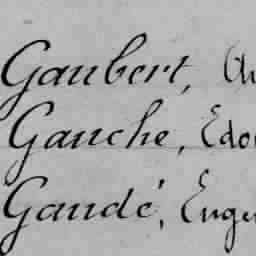 Gaubert,
Gauche, Edo
Gaudé, Euge